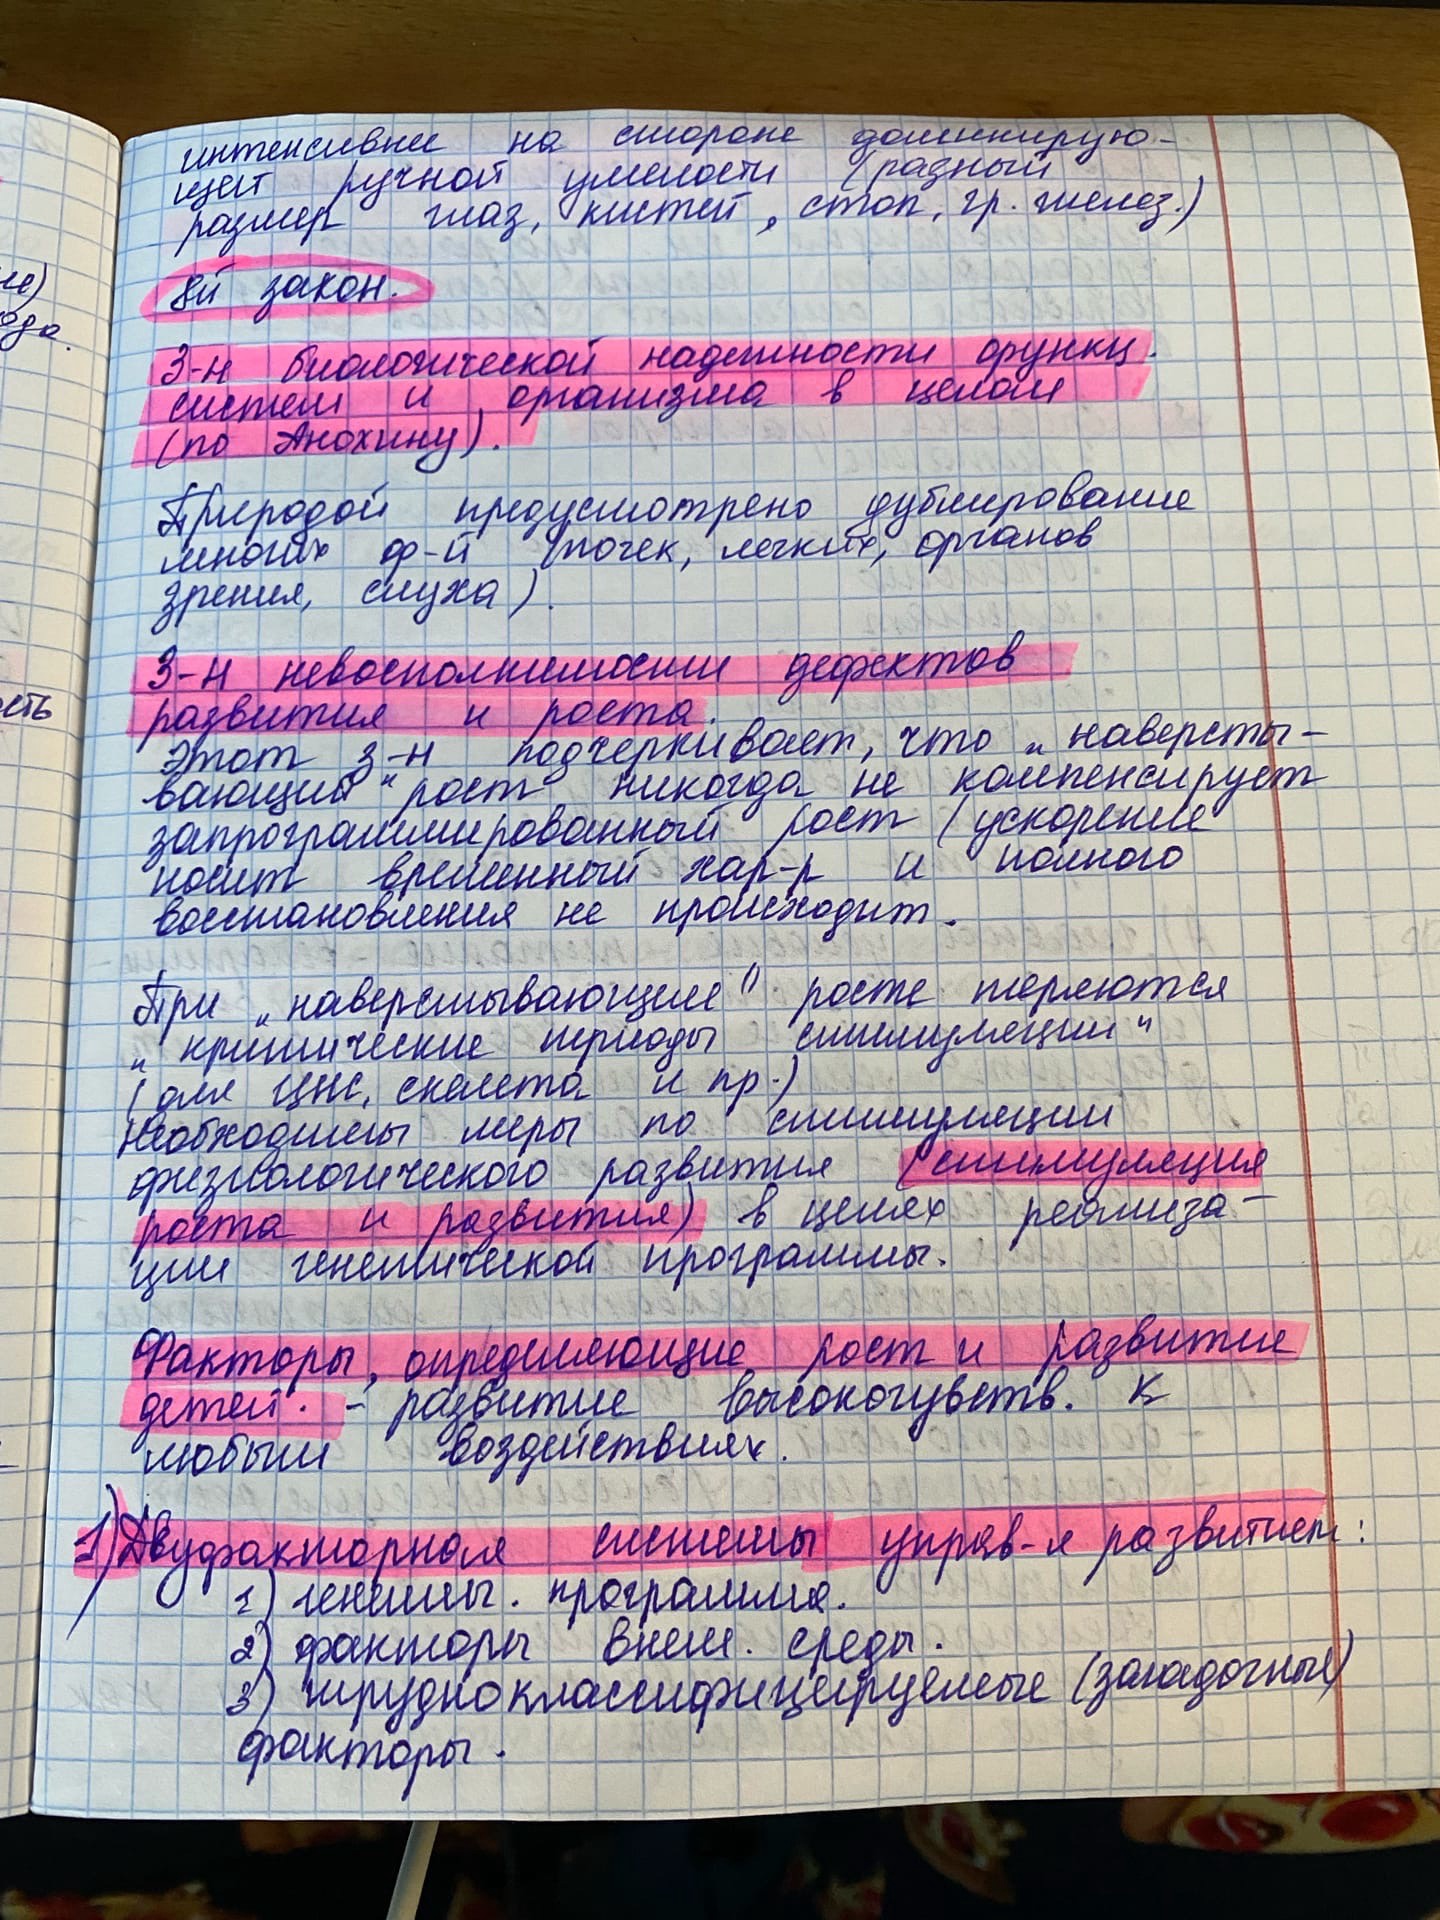 интенсивнее на стороне доминирую-
щей ручной умелости (разный
размер глаз, кистей, стоп, гр. желез.)
8й закон.
З-н биологической надежности функц.
систем и организма в целом
(по Анохину).
Природой предусмотрено дублирование
многих ф-й (почек, легких, органов
зрения, слуха).
З-н невосполнимости дефектов
развития и роста.
Этот з-н подчеркивает, что "наверсты-
вающий" рост никогда не компенсирует
запрограммированный рост (ускорение
носит временный хар-р и полного
восстановления не происходит.
При "наверстывающем" росте теряются
"критические периоды стимуляции"
(для ЦНС, скелета и пр.)
Необходимы меры по стимуляции
физиологического развития (стимуляция
роста и развития) в целях реализа-
ции генетической программы.
Факторы, определяющие рост и развитие
детей. - развитие высокочувств. к
любым воздействиях.
1) Двуфакторная системы управ-я развитием:
1) генетич. программа.
2) факторы внеш. среды.
3) трудноклассифицируемые (загадочные)
факторы.
ие)
ода.
ость